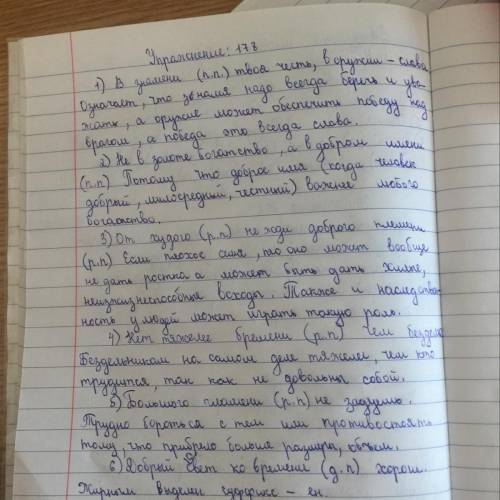 Упражнение: 178
1) В знамени (п.п.) твоя честь, в оружии - слава
Означает, что знамя надо всегда беречь и ува-
жать, а оружие может обеспечить победу над
врагом, а победа это всегда слава.
2) Не в золоте богатство, а в добром имени
(п.п) Потому что доброе имя (когда человек
добрый, милосредний, честный) важнее любого
богатства.
3) От худого (р.п) не жди доброго племени
(р.п) Если плохое семя, то оно может вообще
не дать ростка а может быть дать хилые,
нежизнеспособные всходы. Также и наследствен-
ность у людей может играть такую роль.
4) Нет тяжелее бремени (р.п) чем безделье
Бездельникам на самом деле тяжелее, чем кто
трудится, так как не довольны собой.
5) Большого пламени (р.п) не задуешь.
Трудно бороться с тем или противостоять
тому, что приобрело большие размеры, объём.
6) Добрый совет ко времени (д.п) хорош.
Жирным выделен суффикс - ен.